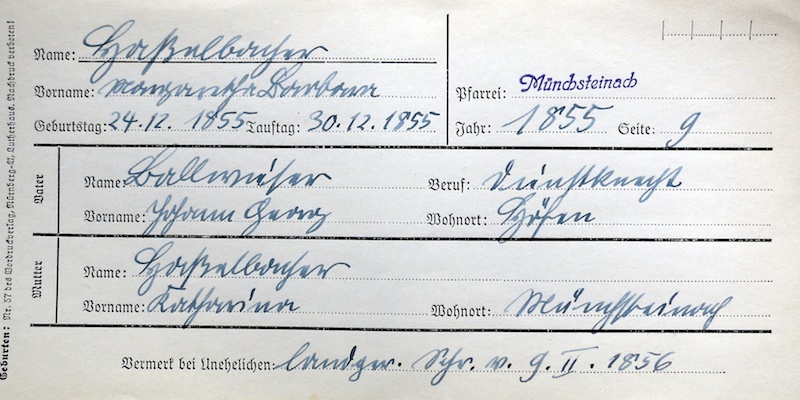 Name: Haßelbacher
Vorname: Margaretha Barbara
Pfarrei: Münchsteinach
Geburtstag: 24.12. 1855 Tauftag: 30.12.1855
Jahr: 1855 Seite: 9
Vater
Name: Ballwieser Beruf: Dienstknecht
Vorname: Johann Georg Wohnort: Höfen
Mutter
Name: Haßelbacher
Vorname: Katharina Wohnort: Münchsteinach
Vermerk bei Unehelichen: landger. Schr. v. 9. II. 1856
Geburten: Nr. 57 des Vordruckverlag, Nürnberg-A, Lutherhaus. Nachdruck verboten!